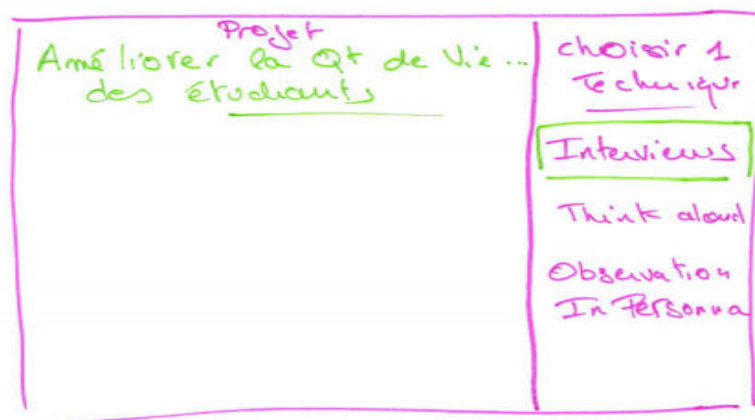 Projet
Améliorer la Qt de Vie...
des étudiants
choisir 1
Technique
Interviews
Think aloud
Observation
In Persona